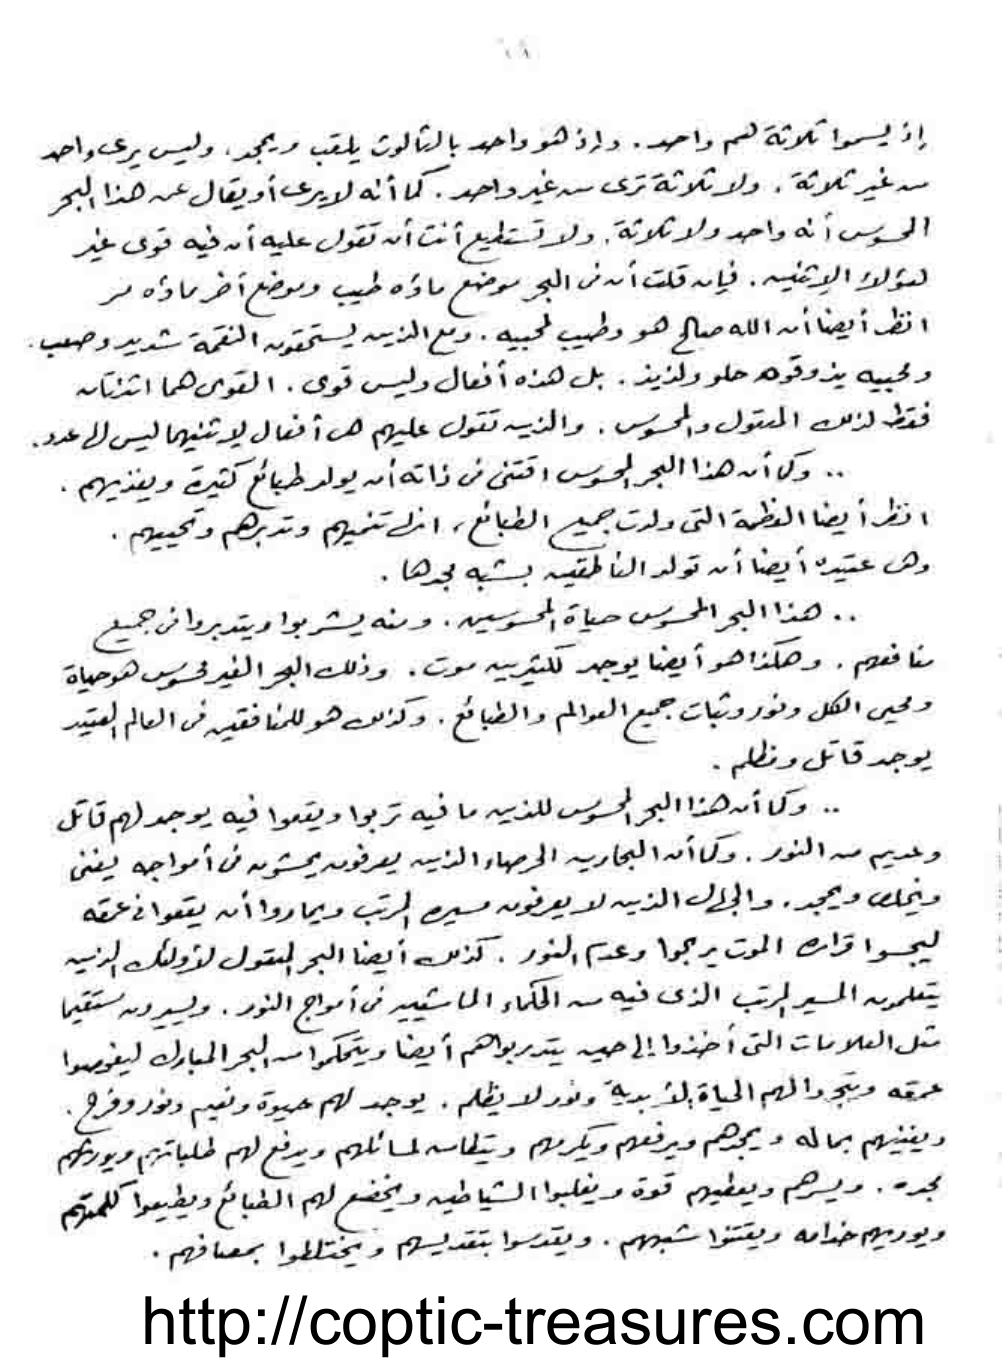 إذ ليسوا ثلاثة هم واحد. وإذ هو واحد بالثالوث يلقب ويمجد. وليس يرى واحد
من غير ثلاثة. ولا ثلاثة ترى من غير واحد. كما أنه لا يرى أو يقال عن هذا البحر
المحسوس أنه واحد ولا ثلاثة. ولا تستطيع أنت أن تقول عليه أن فيه قوى غير
هؤلاء الإثنين. فإن قلت أن فى البحر موضع ماؤه طيب وموضع أخر ماؤه مر
انظر أيضا أن الله صالح هو وطيب لمحبيه. ومع الذين يستحقون النقمة شديد وصعب.
ومحبيه يذوقوه حلو ولذيذ. بل هذه أفعال وليس قوى. القوى هما اثنتان
فقط لذلك المعقول والمحسوس. والذين تقول عليهم هى أفعال لإثنيهما ليس لها عدد.
.. وكما أن هذا البحر المحسوس اقتنى فى ذاته أن يولد طبائع كثيرة ويغذيهم.
انظر أيضا العظمة التى ولدت جميع الطبائع، انها تنميهم وتدبرهم وتحييهم.
وهى عتيده أيضا أن تولد الناطقين بشبه مجدها.
.. هذا البحر المحسوس حياة المحسوسين. ومنه يشربوا ويتدبروا فى جميع
منافعهم. وهكذا هو أيضا يوجد لكثيرين موت. وذلك البحر الغير محسوس هو حياة
ومحيى الكل ونور وثبات جميع العوالم والطبائع. وكذلك هو للمنافقين فى العالم العتيد
يوجد قاتل ومظلم.
.. وكما أن هذا البحر المحسوس للذين ما فيه تربوا ويقعوا فيه يوجد لهم قاتل
وعديم من النور. وكما أن البحارين الحرصاء الذين يعرفون يمشون فى أمواجه يغنى
ويخلص ويمجد. والجهال الذين لا يعرفون مسيره المرتب ويماروا أن يقعوا فى عمقه
ليجسوا قراره الموت يرجوا وعدم النور. كذلك أيضا البحر المعقول لأولئك الذين
يتعلمون المسير المرتب الذى فيه من الحكماء الماشيين فى أمواج النور. ويسيرون مستقيما
مثل العلامات التى أخذوا إلى حين يتدربوا هم أيضا ويتحكموا من البحر المبارك ليغوصوا
عمقه ويتجروا لهم الحياة الأبدية ونور لا يظلم. يوجد لهم حيوة ونعيم ونور وفرح.
ويغنيهم بماله ويمجدهم ويرفعهم ويكرمهم ويتطامن لمسائلهم ويدفع لهم طلباتهم ويورثهم
مجده. ويسرهم ويعطيهم قوة ويغلبوا الشياطين ويخضع لهم الطبائع ويطيعوا كلمتهم
ويوريهم خدامه ويقتنوا شبههم. ويقدسوا بتقديسهم ويختلطوا بمصافهم.
http://coptic-treasures.com